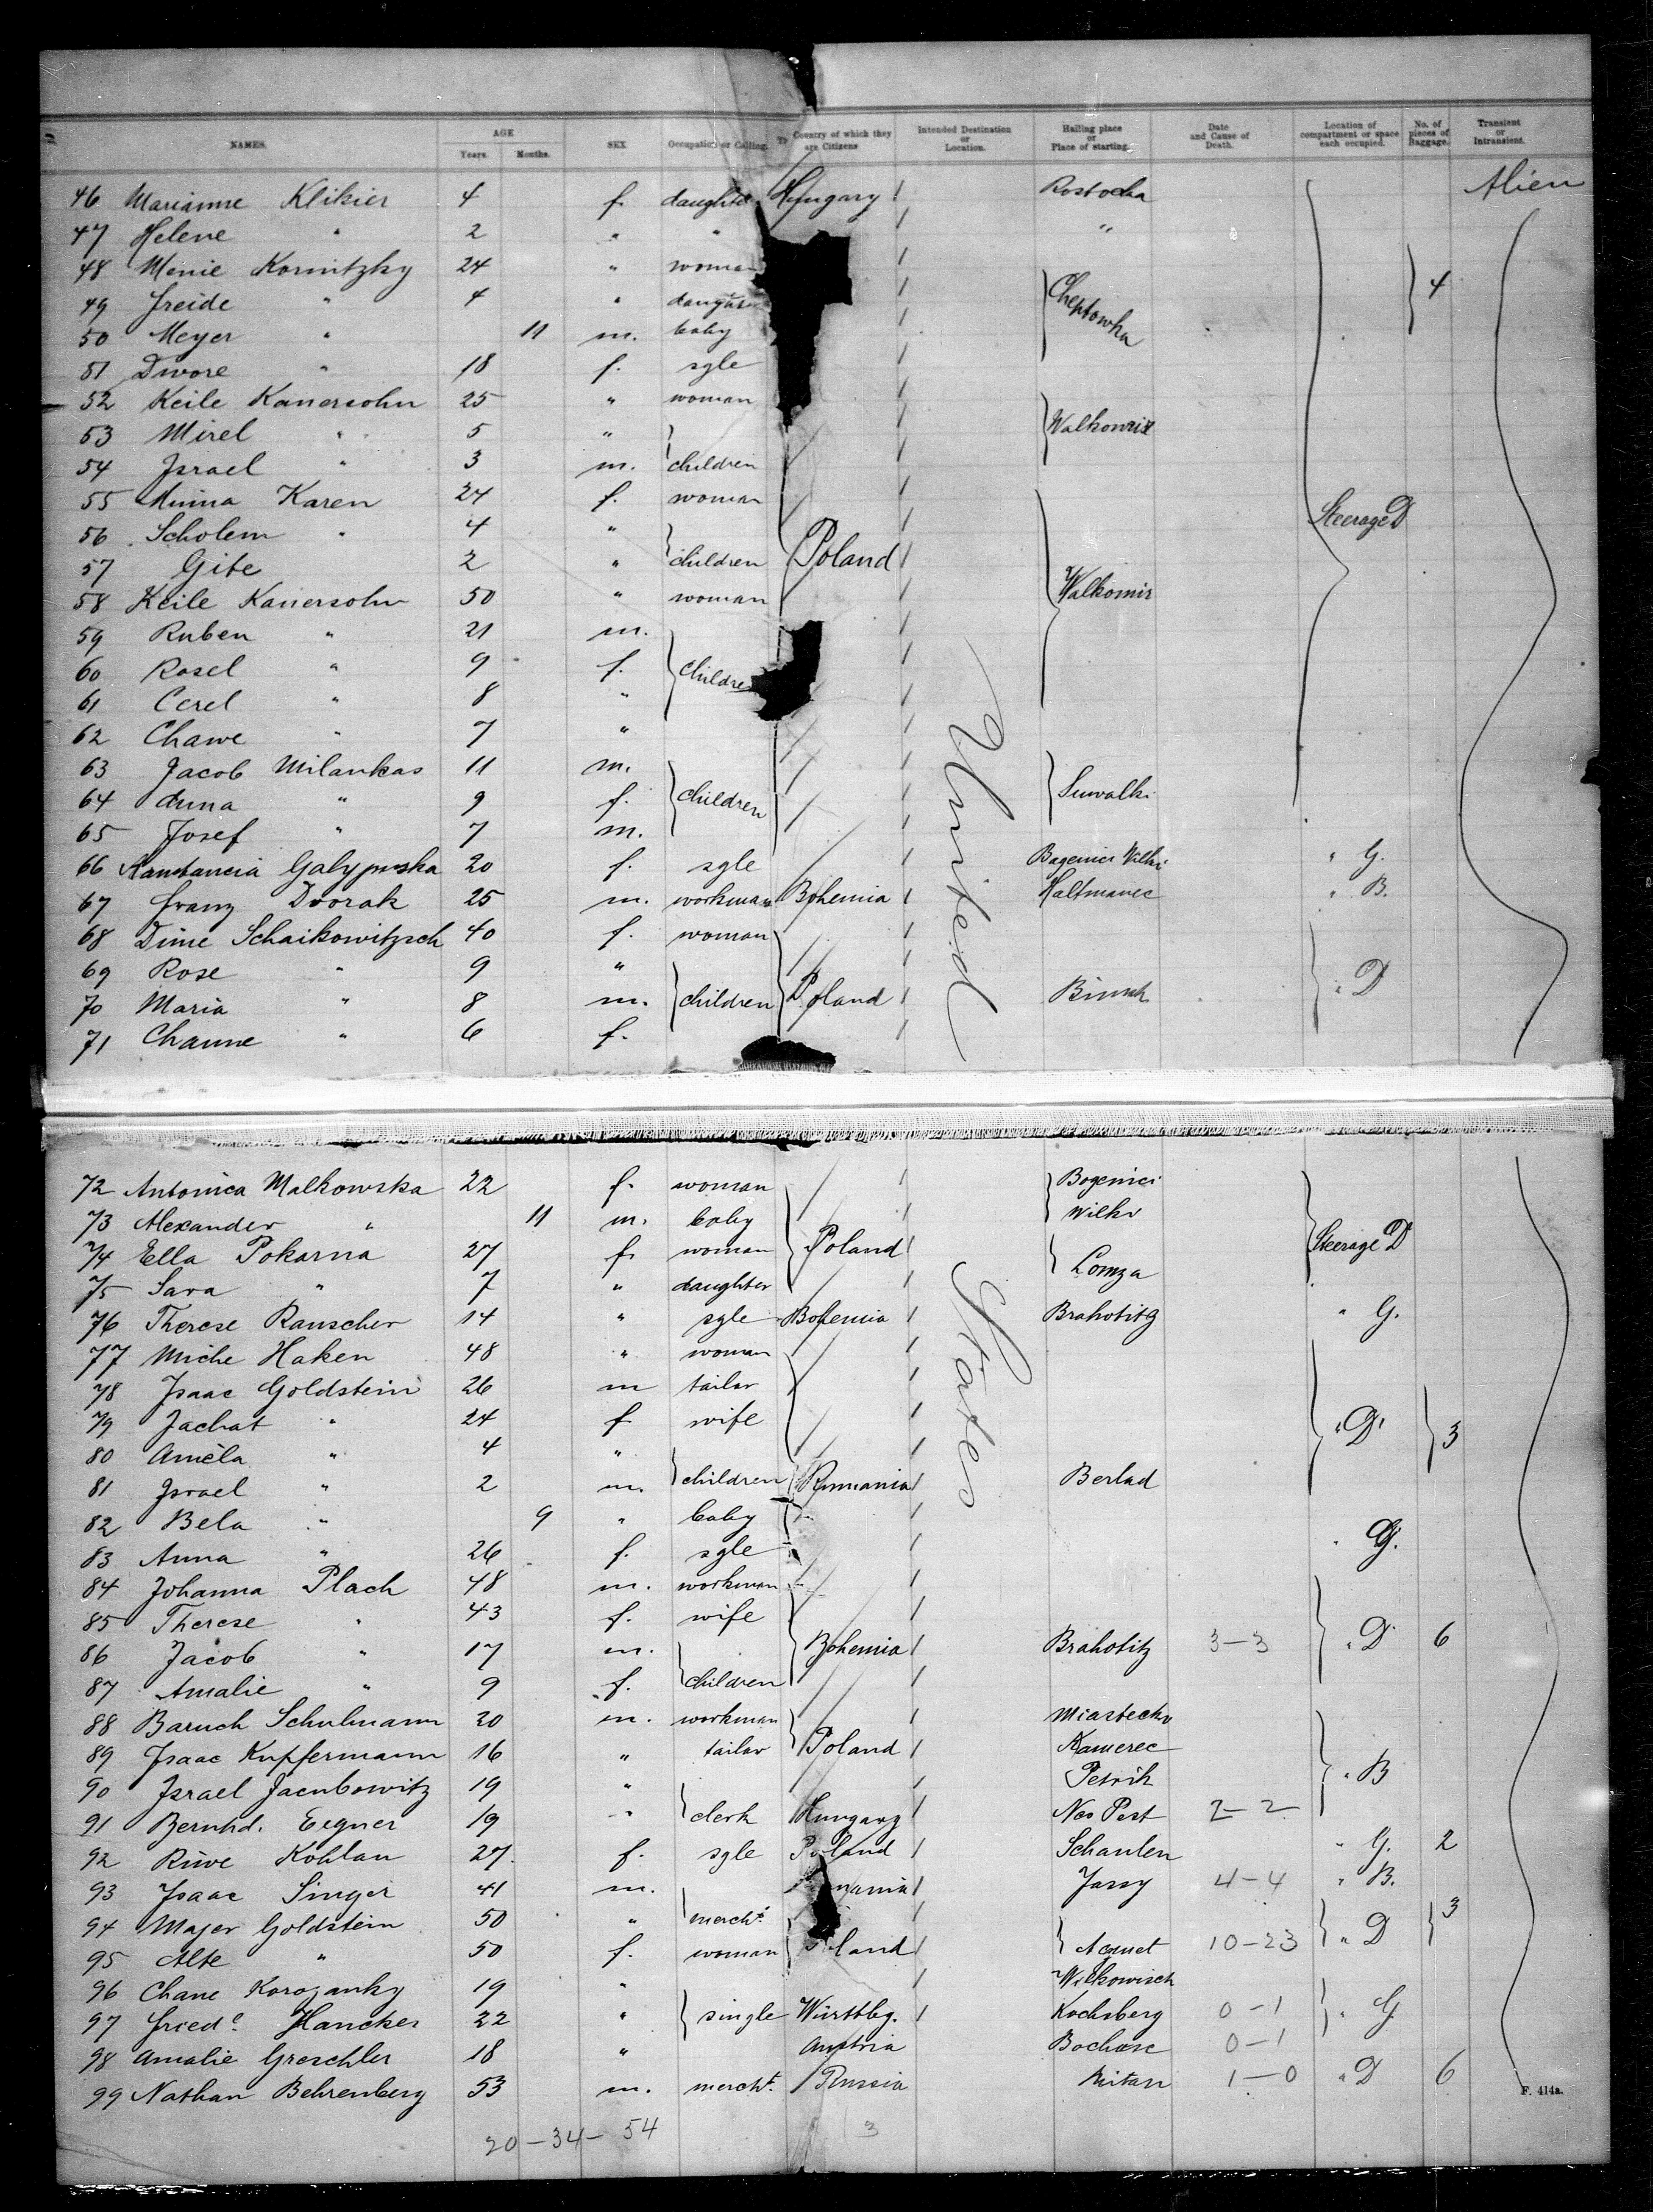 NAMES. AGE Years. Months. SEX Occupation or Calling. Country of which they are Citizens Intended Destination or Location. Hailing place or Place of starting. Date and Cause of Death. Location of compartment or space each occupied. No. of pieces of Baggage. Transient or Intransient.
46 Marianne Klikier 4 f. daughter Hungary Rostocka Alien
47 Helene " 2 " " "
48 Menie Kornitzky 24 " woman 4
49 Freide " 4 " daughter Cheptowka
50 Meyer " 11 m. baby
51 Dwore " 18 f. sgle
52 Keile Kanersohn 25 " woman
53 Mirel " 5 " Walkomir
54 Israel " 3 m. children
55 Minna Karen 24 f. woman
56 Scholem " 4 " Steerage D
57 Gite 2 " children Poland
58 Keile Kanersohn 50 " woman Walkomir
59 Ruben " 21 m.
60 Rosel " 9 f. children
61 Cerel " 8 "
62 Chawe " 7 "
63 Jacob Milankas 11 m.
64 Anna " 9 f. children Suwalki
65 Josef " 7 m.
66 Konstancia 20 f. sgle Bogenici Wilki " G.
67 Franz Dvorak 25 m. workman Bohemia Haltmanec " B.
68 Dime Schaikowitzsch 40 f. woman
69 Rose " 9 "
70 Maria " 8 m. children Poland " D
71 Channe " 6 f.
United States
72 Antonica Malkowska 22 f. woman Bogenici
73 Alexander " 11 m. baby Wilki
74 Ella Pokarna 27 f. woman Poland Steerage D
75 Sara " 7 " daughter Lomza
76 Therese Rauscher 14 " sgle Bohemia Brahotitz " G.
77 Miche Haken 48 " woman
78 Isaac Goldstein 26 m tailor
79 Jachat " 24 f wife " D 3
80 Amela " 4 "
81 Israel " 2 m. children Rumania Berlad
82 Bela " 9 " baby
83 Anna " 26 f. sgle " G.
84 Johanna Plach 48 m. workman
85 Therese " 43 f. wife
86 Jacob " 17 m. Bohemia Brahotitz 3-3 " D 6
87 Amalie " 9 f. children
88 Baruch Schulmann 20 m. workman Miastecko
89 Isaac Kupfermann 16 " tailor Poland Kamerec
90 Israel Jacubowitz 19 " Petrik " B
91 Bernhd. Eegner 19 " clerk Hungary Neo Pest 2-2
92 Riwe Kohlan 27. f. sgle Poland Schaulen " G. 2
93 Isaac Singer 41 m. Jassy 4-4 " B.
94 Majer Goldstein 50 " mercht. 3
95 Alte " 50 f. woman 10-23 " D
96 Chane 19 " Wilkowisch
97 Friede. Hancker 22 " single Württbg. Kochsberg 0-1 " G
98 Amalie Greschler 18 " Austria 0-1
99 Nathan Behrenberg 53 m. mercht. Russia Mitan 1-0 " D 6
F. 414a.
20-34-54 3